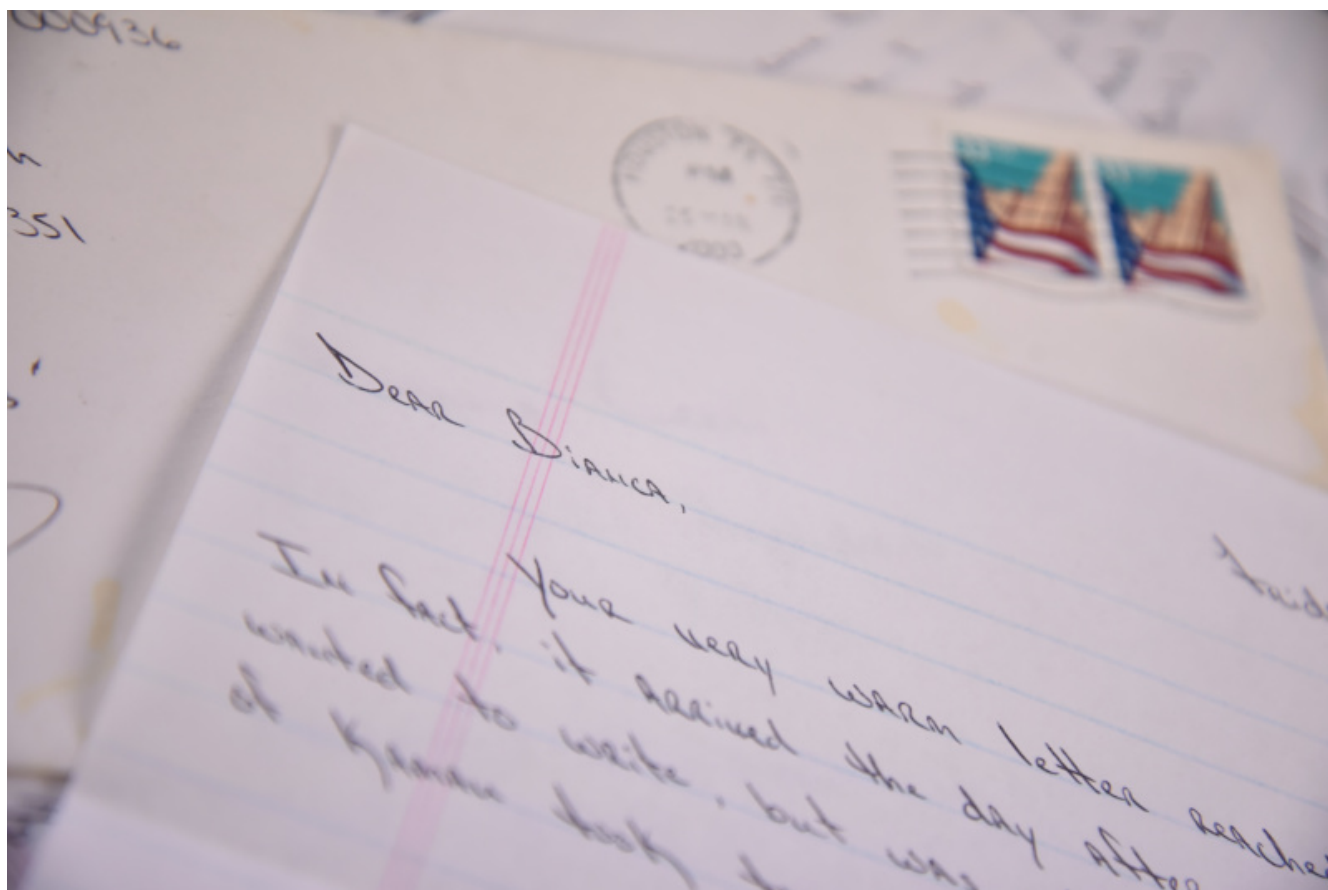 000936
351
HOUSTON TX
PM
2000
Dear Bianca,
Frida
Your very warm letter reached
In fact, it arrived the day after
wanted to write, but was
of Kamau took